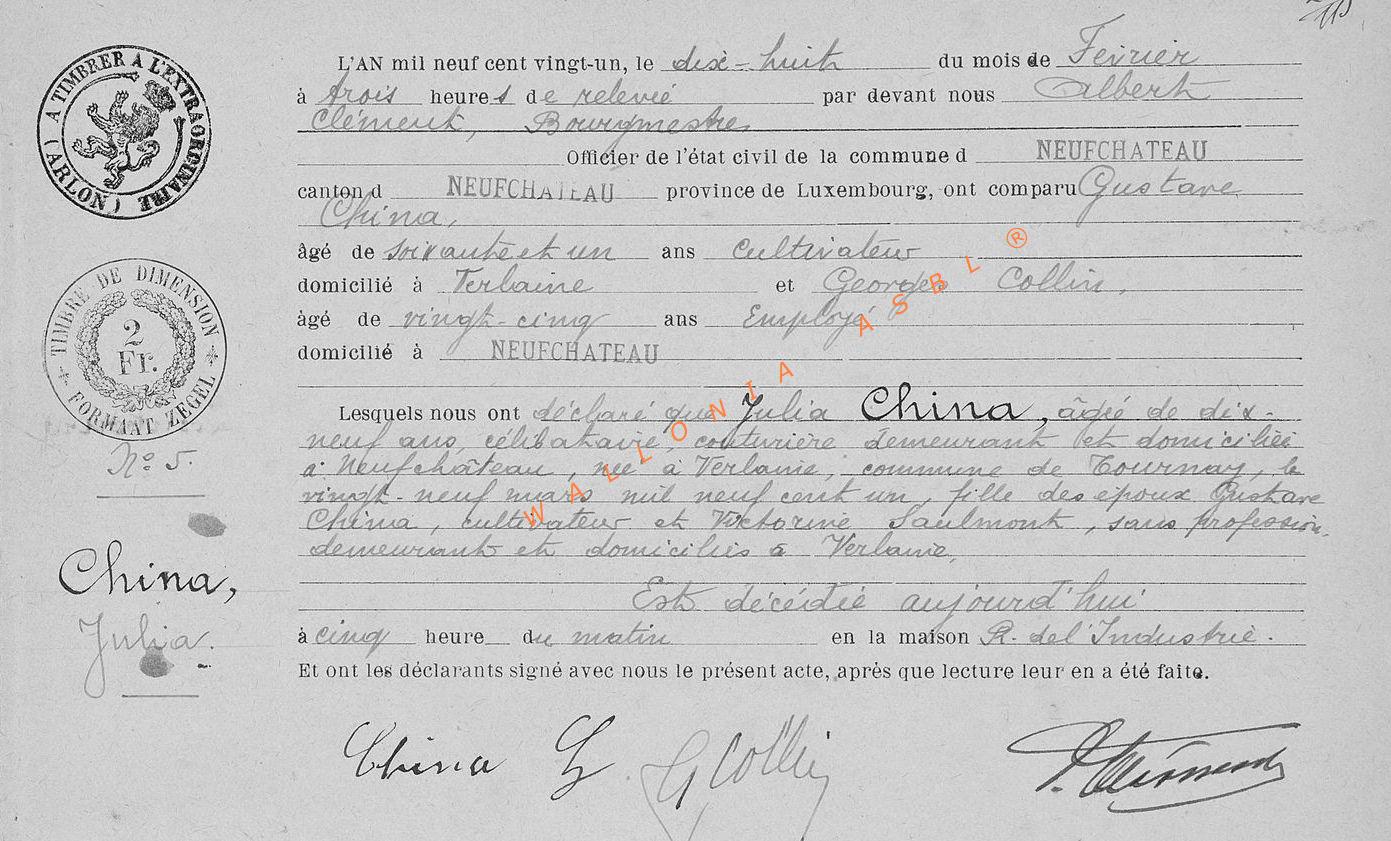 (ARLON) A TIMBRER A L'EXTRAORDINAIRE
TIMBRE DE DIMENSION
2
Fr.
FORMAAT ZEGEL
No 5.
China,
Julia.
L'AN mil neuf cent vingt-un, le dix-huit du mois de Février
à trois heures de relevée par devant nous Albert
Clément, Bourgmestre
Officier de l'état civil de la commune d NEUFCHATEAU
canton d NEUFCHATEAU province de Luxembourg, ont comparu Gustave
China,
âgé de soixante et un ans cultivateur
domicilié à Verlaine et Georges Collin,
âgé de vingt-cinq ans Employé
domicilié à NEUFCHATEAU
Lesquels nous ont déclaré que Julia China, âgée de dix-
neuf ans, célibataire, couturière demeurant et domiciliée
à Neufchâteau, née à Verlaine, commune de Tournay, le
vingt-neuf mars mil neuf cent un, fille des époux Gustave
China, cultivateur et Victorine Saulmont, sans profession,
demeurant et domiciliés à Verlaine,
Est décédée aujourd'hui
à cinq heure du matin en la maison R. de l'Industrie.
Et ont les déclarants signé avec nous le présent acte, après que lecture leur en a été faite.
China G Collin
WALLONIA ASBL ®